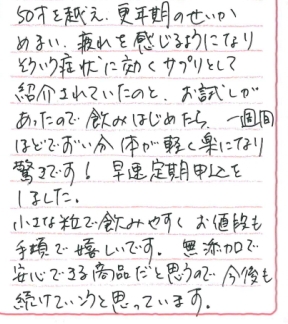 50才を越え、更年期のせいか
めまい、疲れを感じるようになり
そういう症状に効くサプリとして
紹介されていたのと、お試しが
あったので飲みはじめたら、一週間
ほどでずい分体が軽く楽になり
驚きです！早速定期申込を
しました。
小さな粒で飲みやすく お値段も
手頃で嬉しいです。無添加で
安心できる商品だと思うので 今後も
続けていこうと思っています。